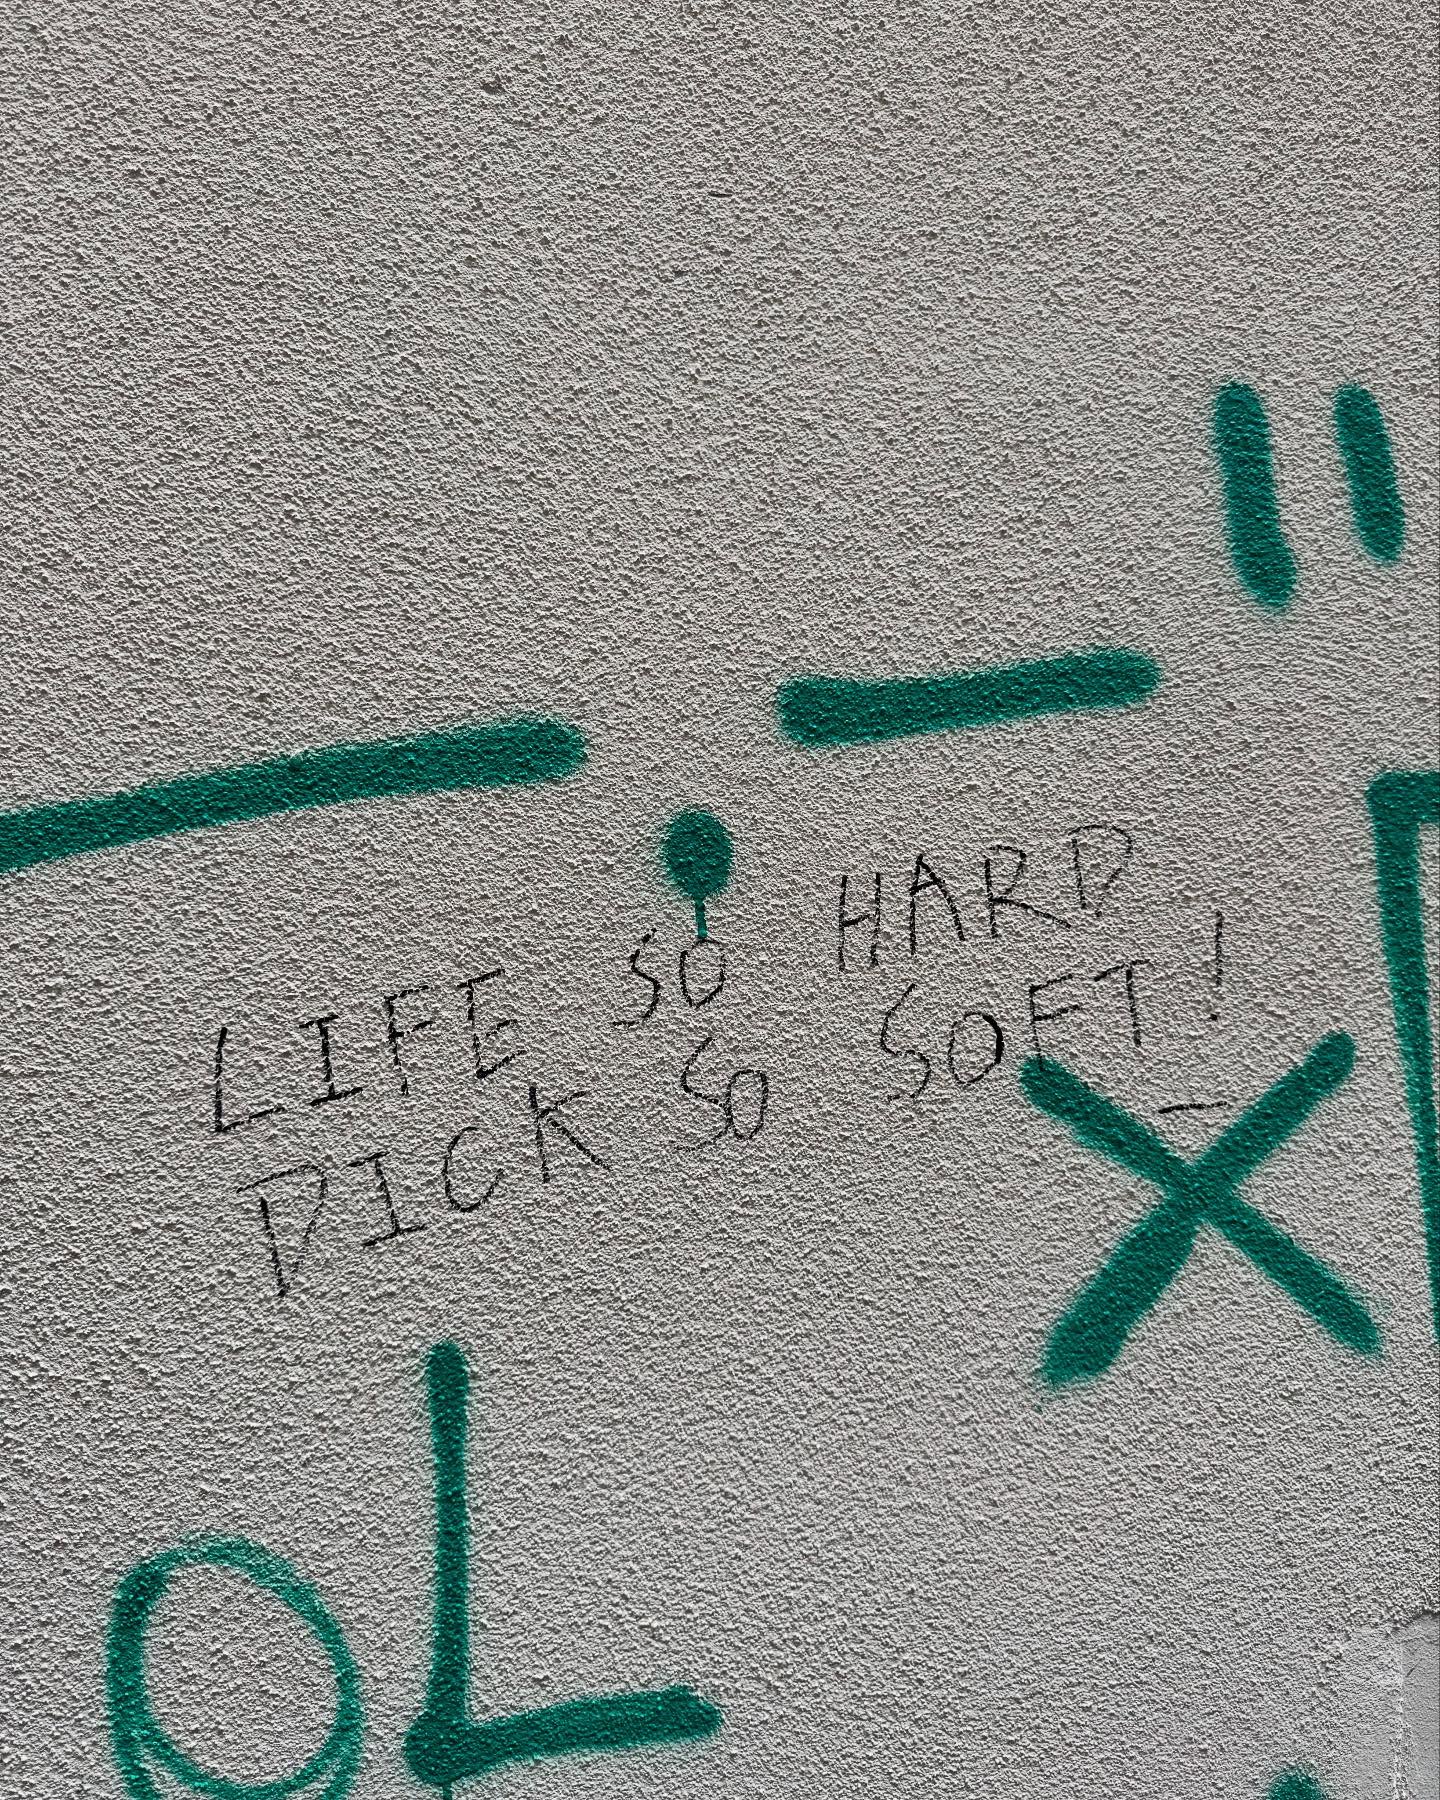 LIFE SO HARD
DICK SO SOFT!
X
OL